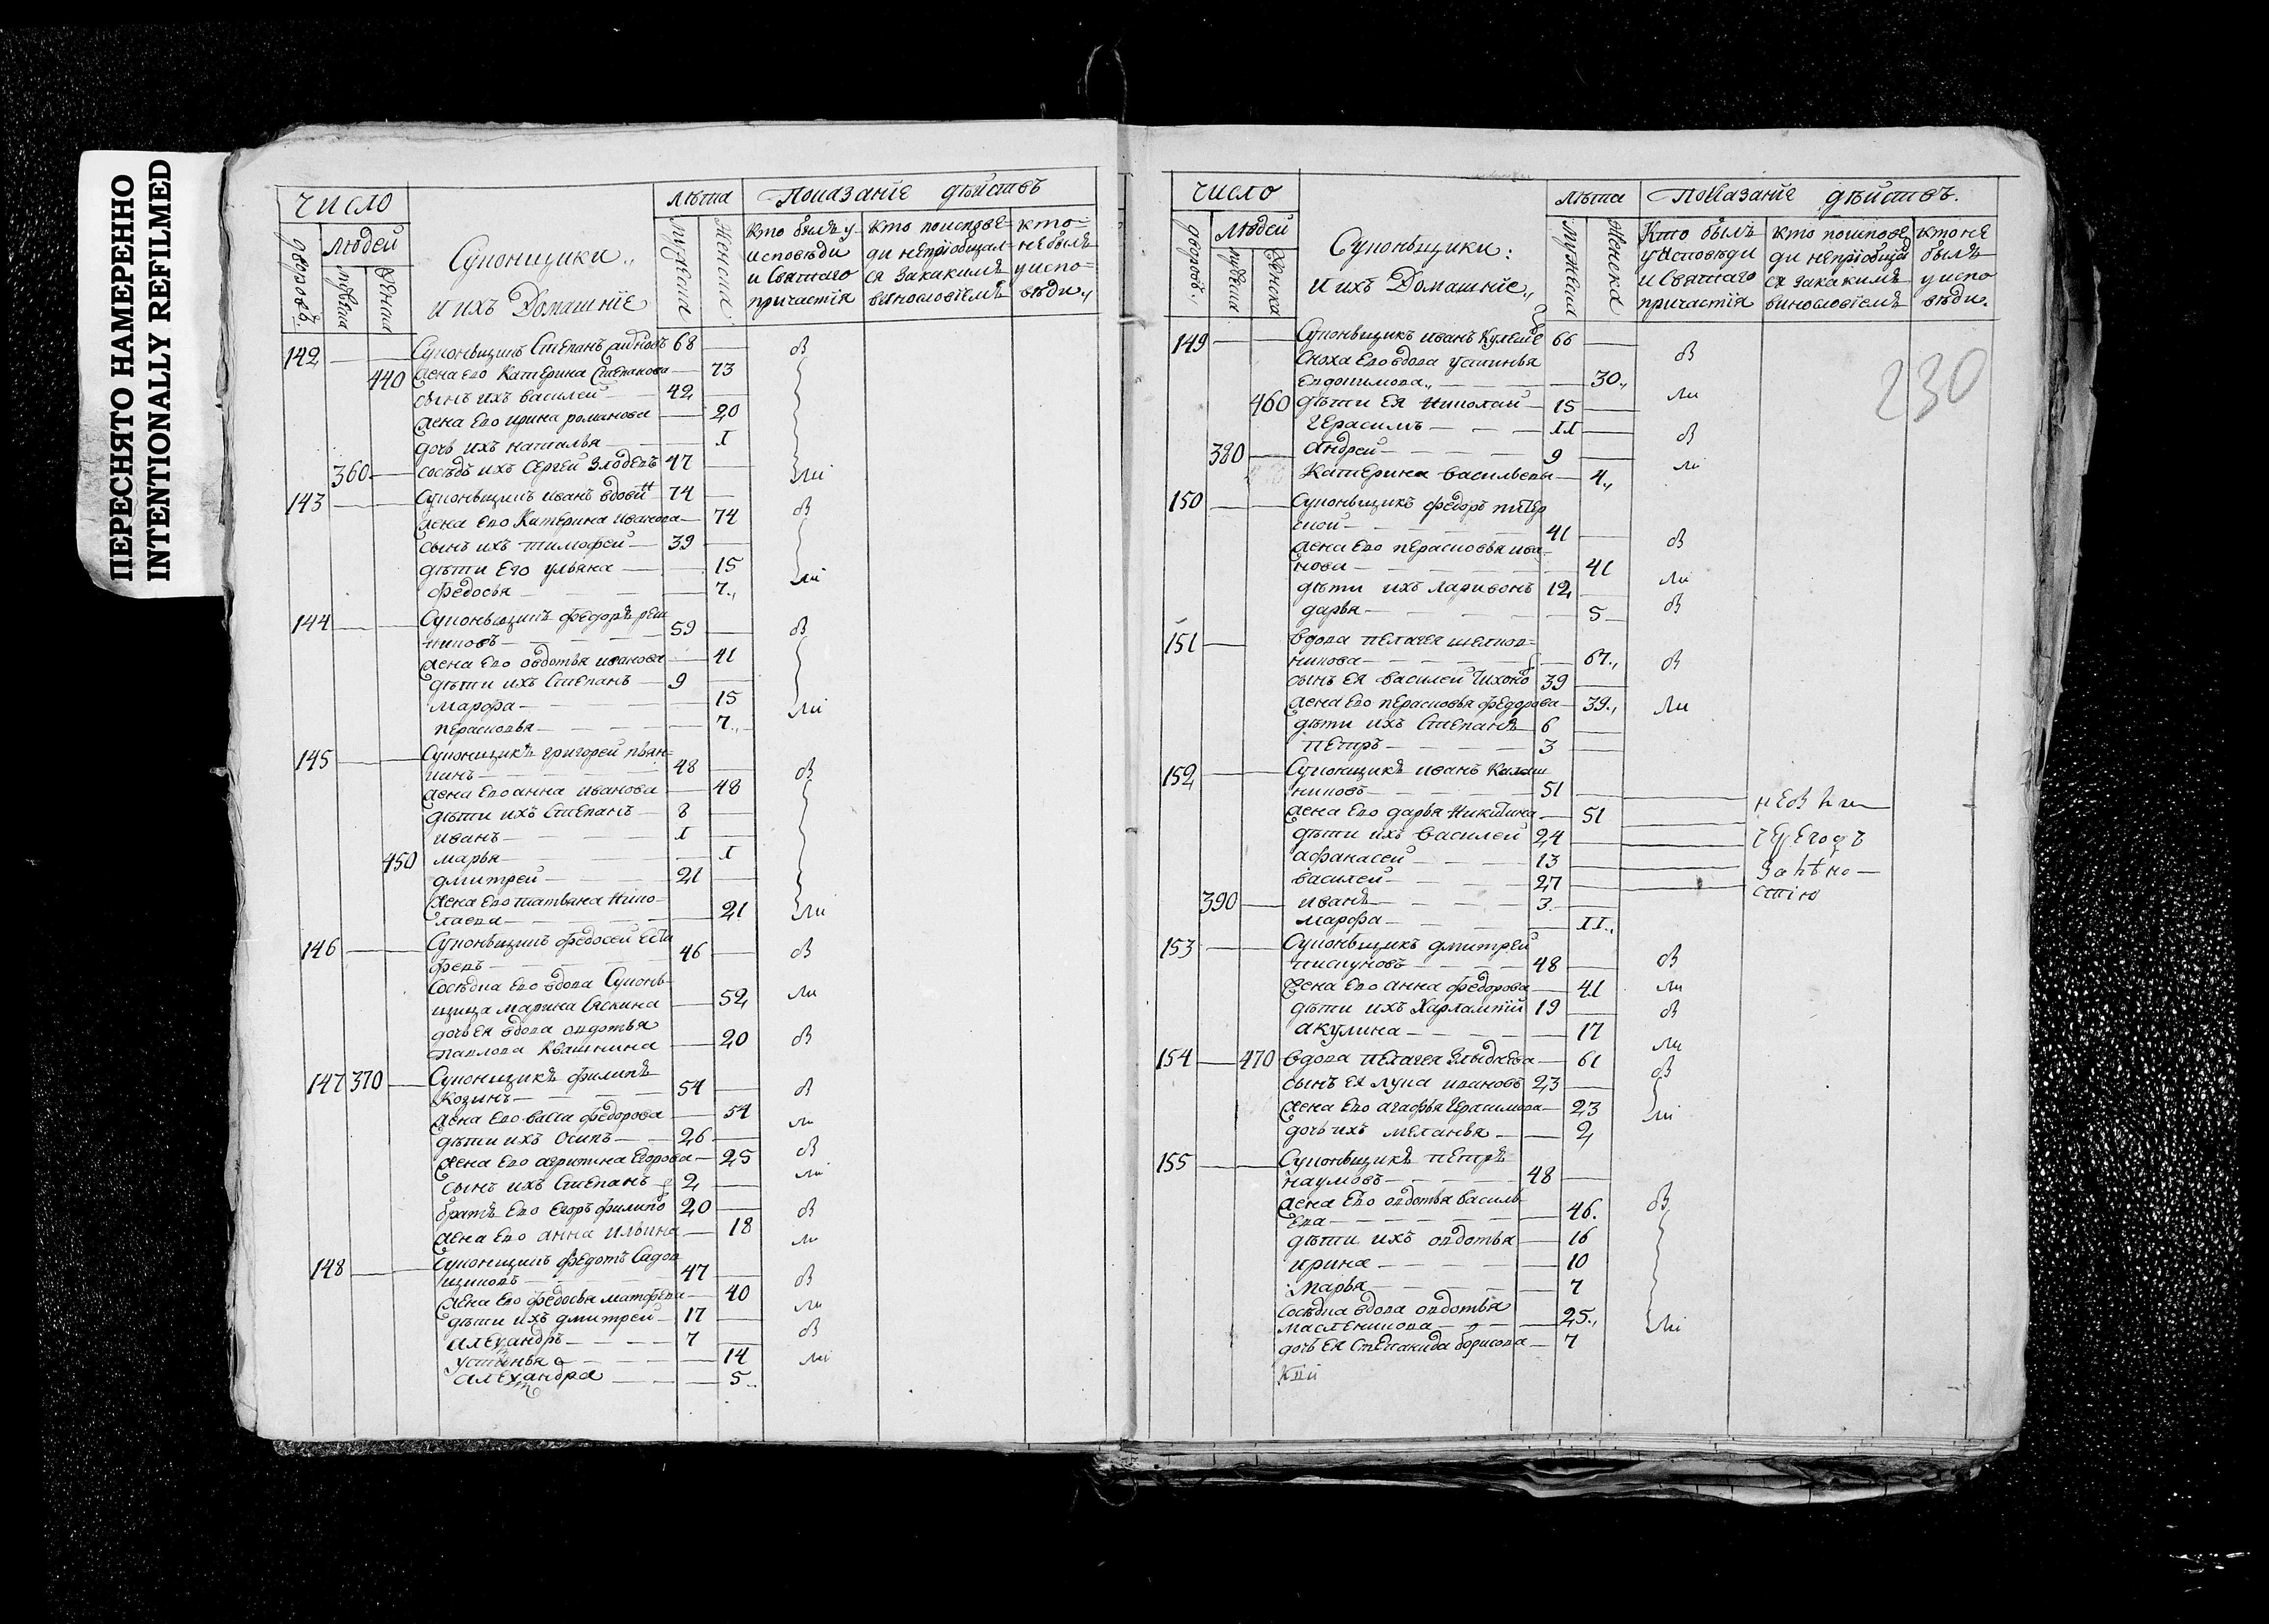 ПЕРЕСНЯТО НАМЕРЕННО
INTENTIONALLY REFILMED
число
людей
дворовъ
мужска
женска
Сукон͡щики
и ихъ Домашніе
лѣта
мужеска
женска
Показаніе дѣйствъ
кто былъ у
исповѣди
и Святаго
причастія
кто поисповѣ-
ди непріобщал-
ся закакимъ
винословіемъ
кто-
не былъ
у испо-
вѣди
142 Суконьщикъ Степанъ 68
440 жена ево Катерина Степанова 73
сынъ ихъ василей 42
жена ево ирина романова 20
дочь ихъ наталья 1
360 сосѣдъ ихъ Сергей 47
143 Суконьщикъ иванъ вдови 74
жена ево Катерина иванова 74
сынъ ихъ тимофей 39
дѣти Его ульяна 15
Федосья 7
144 Суконьщикъ федоръ реш
никовъ 59
жена ево овдотья иванова 41
дѣти ихъ Степанъ 9
марфа 15
перасковья 7
145 Суконщикъ григорей пьян=
кинъ 48
жена ево анна иванова 48
дѣти ихъ Степанъ 8
иванъ 1
450 марья 1
дмитрей 21
жена ево татьяна нико-
лаева 21
146 Суконьщикъ федосей Ести
феевъ 46
Сосѣдка ево вдова Суконь-
щица марина 52
дочь ея вдова овдотья
павлова Квашнина 20
147 370 Суконщикъ филипъ
Козинъ 54
жена ево васса федорова 54
дѣти ихъ Осипъ 26
жена ево агрипина Егорова 25
сынъ ихъ Степанъ 2
братъ ево Егоръ филипо 20
жена ево анна ильина 18
148 Суконщикъ федотъ Садов
щиковъ 47
жена ево федосья матфева 40
дѣти ихъ дмитрей 17
алеѯандръ 7
устинья 14
алеѯандра 5
число
людей
дворовъ
мужеска
женска
Суконьщики:
и ихъ Домашніе
лѣта
мужеска
Женска
Показаніе дѣйствъ.
Кто былъ
у исповѣди
и Святаго
причастія
кто поисповѣ
ди непріобща
ся закакимъ
винословіемъ
кто не
былъ
у испо
вѣди
230
149 Суконьщикъ иванъ Кулеше 66
Сноха ево вдова устинья
Евдокимова 30
460 дѣти ея Николай 15
Герасимъ 11
380 Андрей 9
Катерина васильева 4
150 Суконьщикъ федоръ питер
ской 41
жена ево перасковья ива-
нова 41
дѣти ихъ ларивонъ 12
дарья 5
151 вдова пелагея шелков=
никова 67
сынъ ея василей Тихоно 39
жена ево перасковья федорова 39
дѣти ихъ Степанъ 6
петръ 3
152 Суконщикъ иванъ Калаш
никовъ 51
жена ево дарья Никитина 51
дѣти ихъ василей 24
афанасей 13
василей 27
390 иванъ 3
марфа 11
153 Суконьщикъ дмитрей
пискуновъ 48
жена ево анна федорова 41
дѣти ихъ Харлампій 19
акулина 17
154 470 вдова пелагея 61
сынъ ея лука ивановъ 23
жена ево агафья герасимова 23
дочь ихъ меланья 2
155 Суконьщикъ петръ
наумовъ 48
жена ево овдотья василь
ева 46
дѣти ихъ овдотья 16
ирина 10
марья 7
сосѣдка вдова овдотья
масленикова 25
дочь ея степанида борисова 7